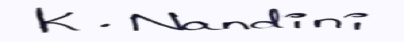 K. Nandini